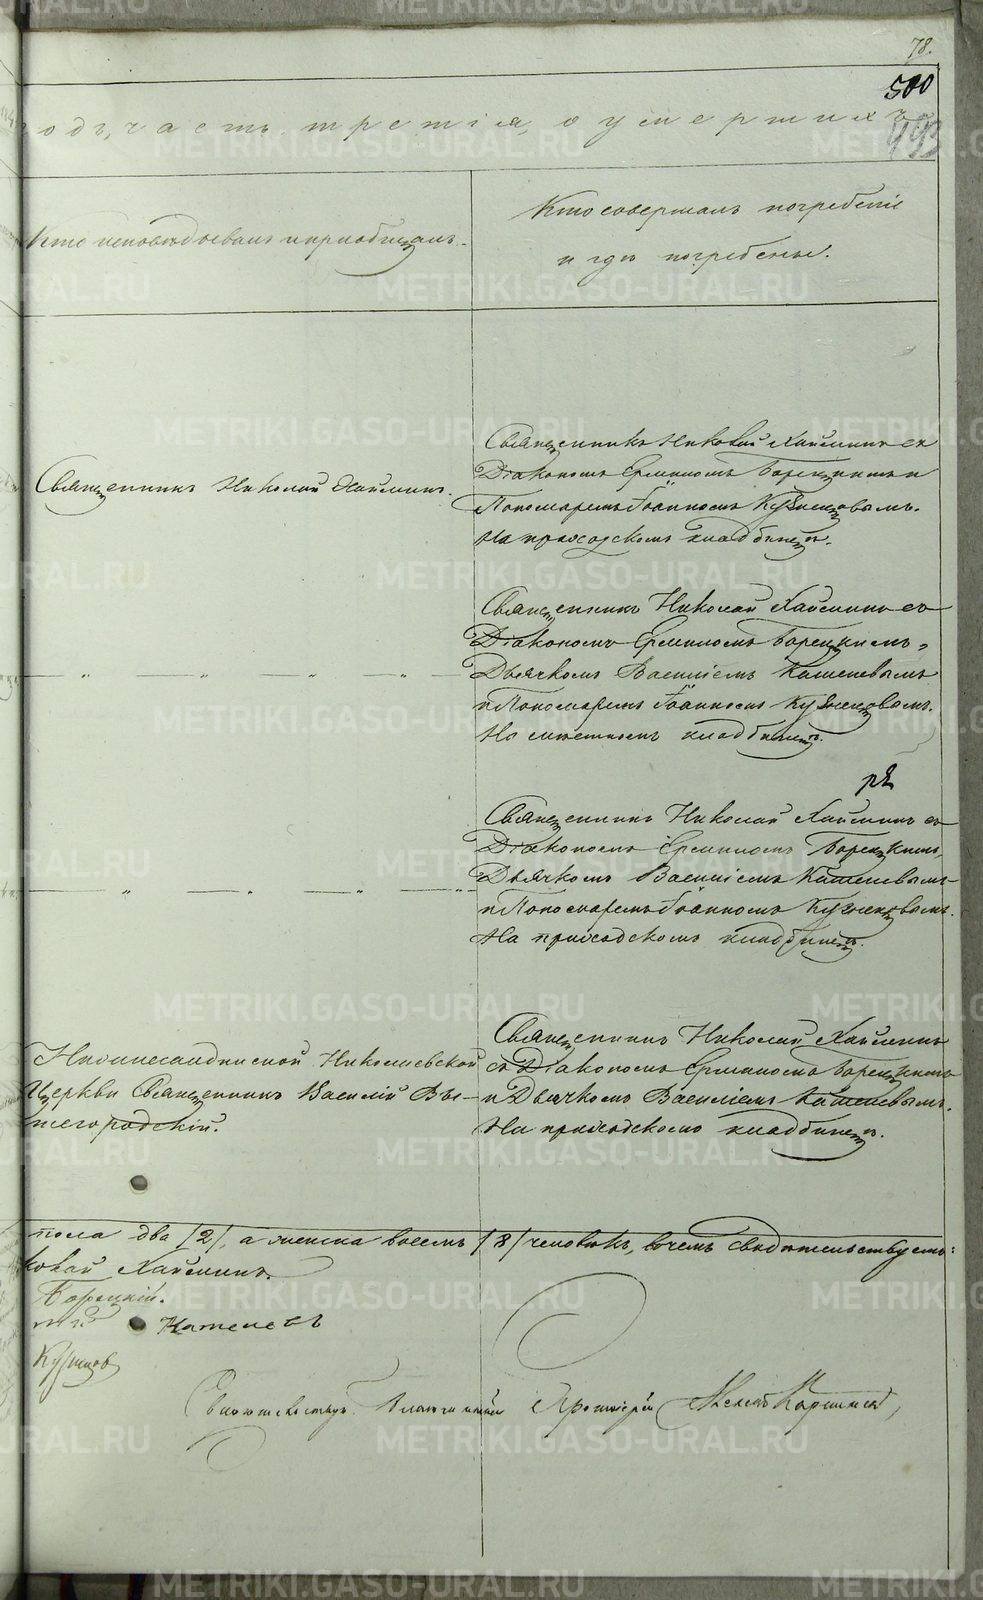 78.
500
493
одъ, часть третія, о умершихъ
Кто исповѣдывалъ и пріобщалъ.
Кто совершалъ погребеніе
и гдѣ погребены.
Священникъ Николай Хайминъ.
Священникъ Николай Хайминъ съ
Діакономъ Ермиломъ Борецкимъ и
Пономаремъ Іоанномъ Кузнецовымъ.
На приходскомъ кладбищѣ.
Священникъ Николай Хайминъ съ
Діакономъ Ермиломъ Борецкимъ,
Дьячкомъ Василіемъ Кашеневымъ
и Пономаремъ Іоанномъ Кузнецовымъ.
На мѣстномъ кладбищѣ.
Священникъ Николай Хайминъ съ
Діакономъ Ермиломъ Борецкимъ,
Дьячкомъ Василіемъ Кашеневымъ
и Пономаремъ Іоанномъ Кузнецовымъ.
На приходскомъ кладбищѣ.
Николаевской
Церкви Священникъ Василій Вы-
шегородскій.
Священникъ Николай Хайминъ
съ Діакономъ Ермиломъ Борецкимъ
и Дьячкомъ Василіемъ Кашеневымъ.
На приходскомъ кладбищѣ.
пола два /2/, а женска восемь /8/ человѣкъ, въ чемъ свидѣтельствуемъ:
колай Хайминъ.
Борецкій.
Кашеневъ
Кузнецовъ
Свидѣтельствую Благочинный Протоіерей
METRIKI.GASO-URAL.RU